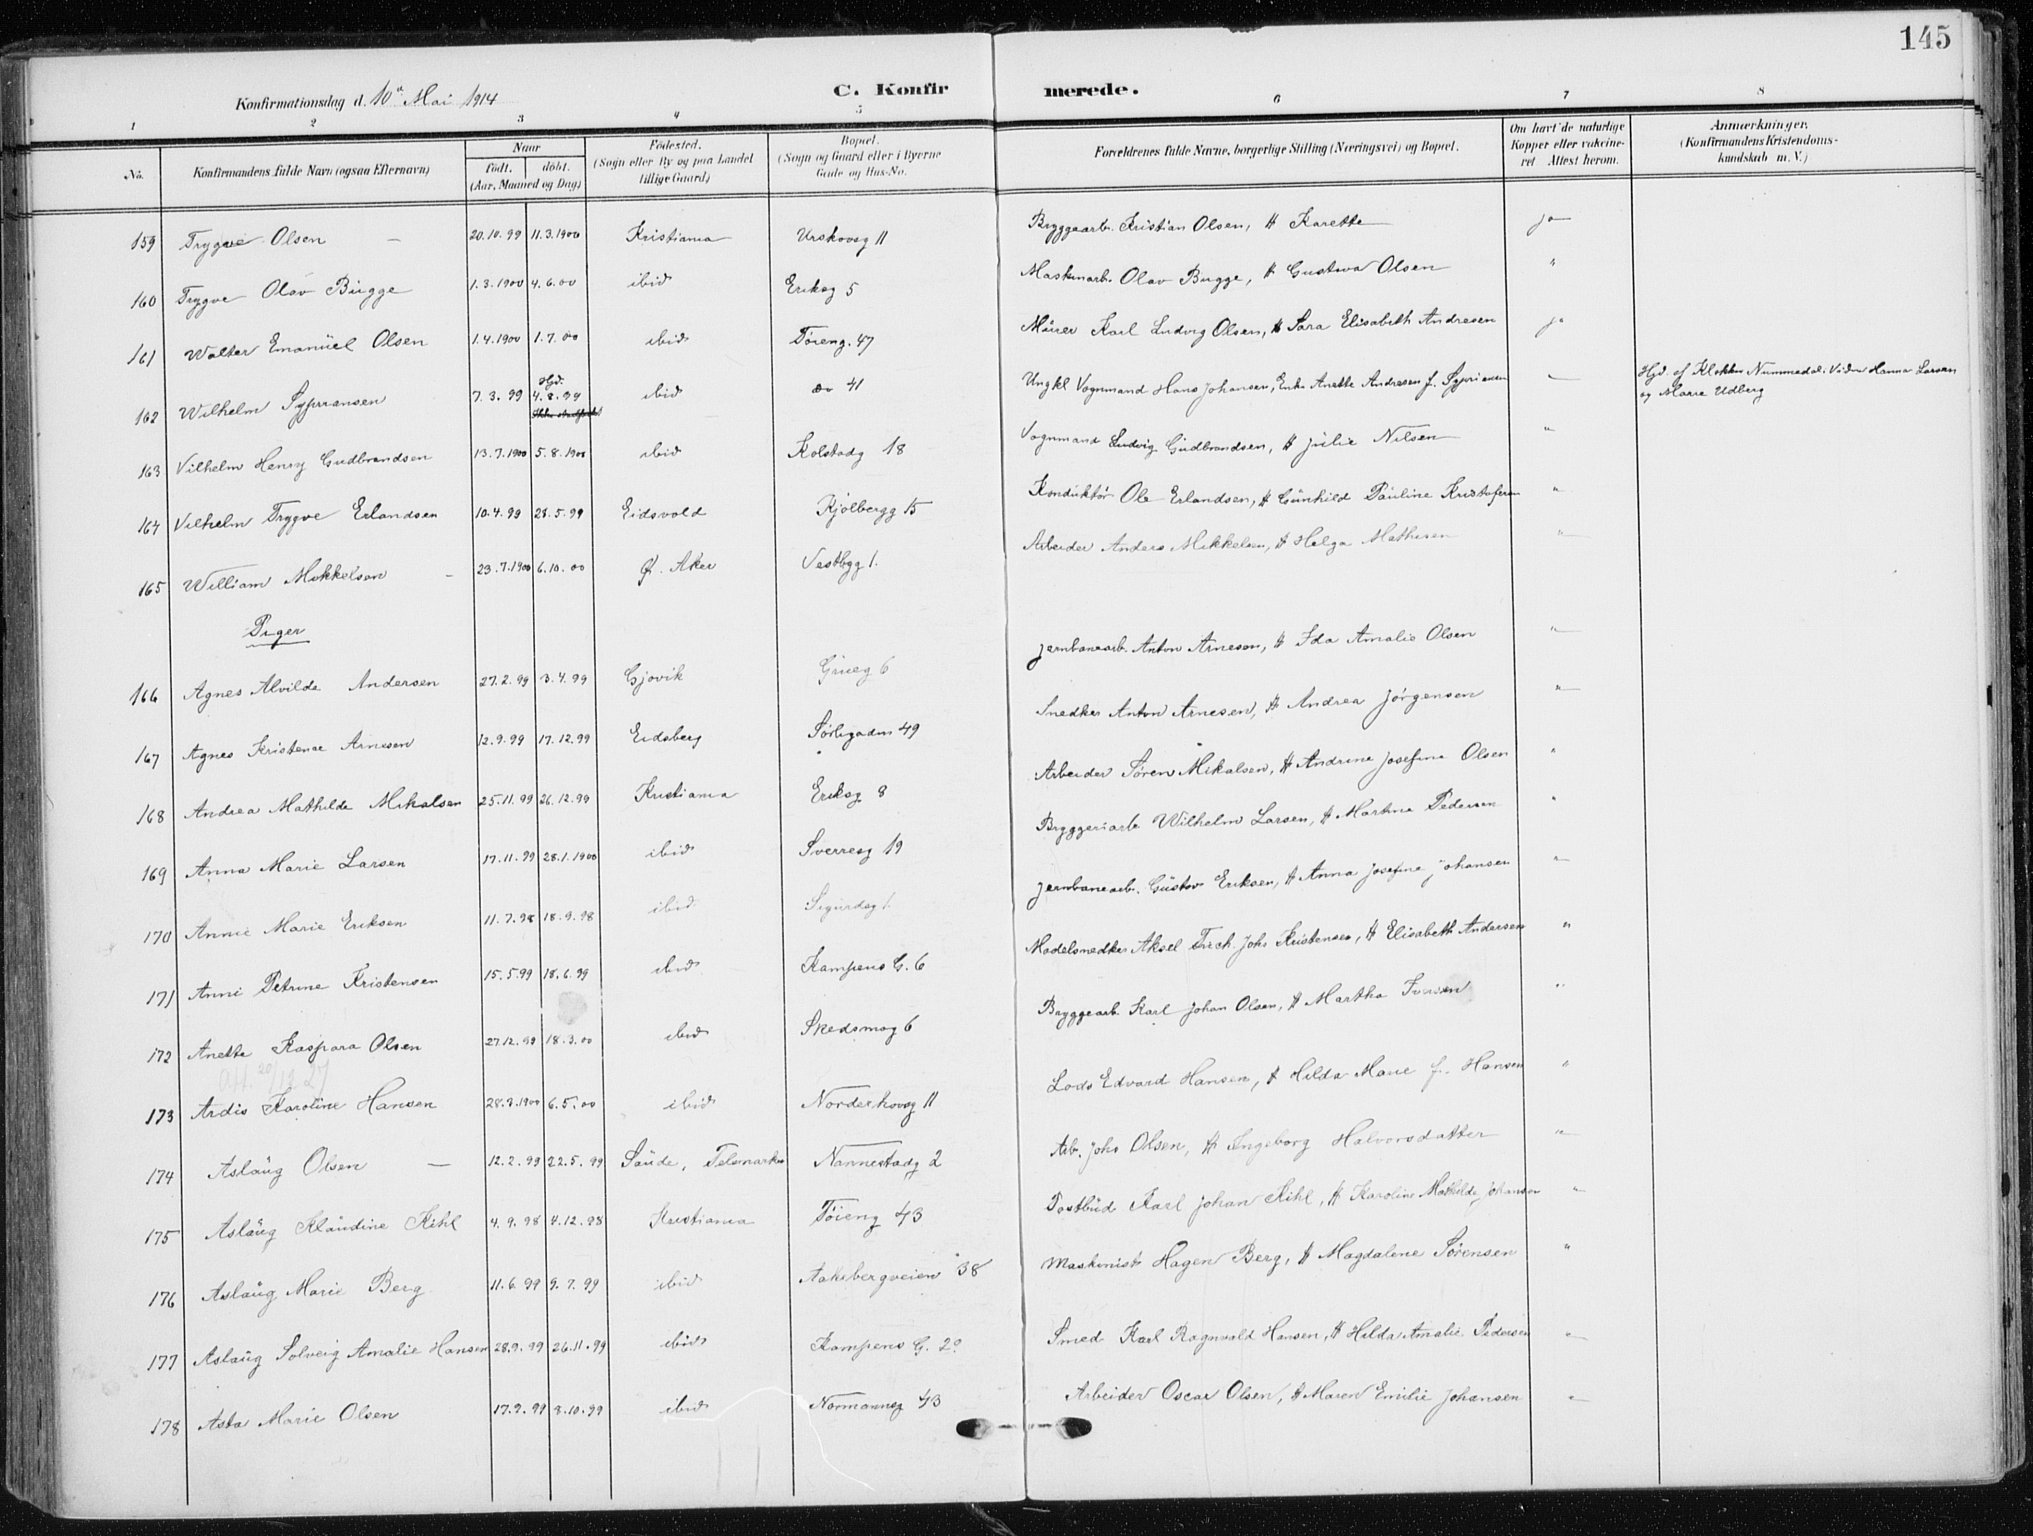 145
Konfirmationsdag d. 10de Mai 1914
C. Konfirmerede.
1 2 3 4 5 6 7 8
No.
Konfirmandens fulde Navn (ogsaa Efternavn)
Naar
født. døbt.
(Aar, Maaned og Dag)
Fødested.
(Sogn eller By og paa Landet
tillige Gaard)
Bopæl.
(Sogn og Gaard eller i Byerne
Gade og Hus-No.
Forældrenes fulde Navne, borgerlige Stilling (Næringsvei) og Bopæl.
Om havt de naturlige
Kopper eller vakcine-
ret Attest herom.
Anmærkninger.
(Konfirmandens Kristendoms-
kundskab m. V.)
159 Trygve Olsen – 20.10.99 11.3.1900 Kristiania Urskovsg 11 Bryggearb. Kristian Olsen, H Karette ja
160 Trygve Olav Bugge 1.3.1900 4.6.00 ibid Eriksg 5 Maskinarb. Olav Bugge, H Gustava Olsen "
161 Walter Emanuel Olsen 1.4.1900 1.7.00 ibid Tøieng. 47 Murer Karl Ludvig Olsen, H Sara Elisabeth Andresen ja
162 Wilhelm Syprransen 7.3.99 Hjd. 4.8.99 ibid do 41 Ungkl Vognmand Hans Johansen, Enke Anette Andresen f. Syprianen – Hjd. af Klokker Nummedal. Vidner Hanna Larsen
og Marie Udberg
163 Vilhelm Henry Gudbrandsen 13.7.1900 5.8.1900 ibid Kolstadg 18 Vognmand Ludvig Gudbrandsen, H Julie Nilsen "
164 Vilhelm Trygve Erlandsen 10.4.99 28.5.99 Eidsvold Kjølbergg 15 Konduktør Ole Erlandsen, H Gunhild Pauline Kristofersen "
165 William Mikkelsen – 23.7.1900 6.10.00 Ø. Aker Vestbyg 1. Arbeider Anders Mikkelsen, H Helga Mathisen "
Piger
166 Agnes Alvilde Andersen 27.2.99 3.4.99 Gjøvik Grueg 6 Jernbanearb. Anton Arnesen, H Ida Amalie Olsen "
167 Agnes Kristense Arnesen 12.9.99 17.12.99 Eidsberg Sørligaden 49 Snedker Anton Arnesen, H Andrea Jørgensen "
168 Andrea Mathilde Mikalsen 25.11.99 26.12.99 Kristiania Eriksg 8 Arbeider Søren Mikalsen, H Andrine Josefine Olsen "
169 Anna Marie Larsen 17.11.99 28.1.1900 ibid Sverresg 19 Bryggeriarb Wilhelm Larsen, H Martine Pedersen "
170 Annie Marie Eriksen 11.7.98 18.9.98 ibid Sigurdsg 1. Jernbanearb. Gustav Eriksen, H Anna Josefine Johansen "
171 Anni Petrine Kristensen 15.5.99 18.6.99 ibid Kampens G. 6 Modelsnedker Aksel Fredr. Johs Kristensen, H Elisabeth Andersen "
172 Anette Kaspara Olsen 27.12.99 18.3.00 ibid Skedsmog 6 Bryggearb. Karl Johan Olsen, H Martha Iversen "
Att. 20/12 27
173 Ardis Karoline Hansen 28.3.1900 6.5.00 ibid Norderhovsg 11 Lods Edvard Hansen, H Hilda Marie f. Hansen "
174 Aslaug Olsen – 12.2.99 22.5.99 Saude, Telemarken Nannestadg 2 Arb. Johs Olsen, H Ingeborg Halvorsdatter "
175 Aslaug Klaudine Kihl 4.9.98 4.12.98 Kristiania Tøieng 43 Postbud Karl Johan Kihl, H Karoline Mathilde Johansen "
176 Aslaug Marie Berg 11.6.99 9.7.99 ibid Aakebergveien 38 Maskinist Hagen Berg, H Magdalene Sørensen "
177 Aslaug Solveig Amalie Hansen 28.9.99 26.11.99 ibid Kampens G. 20 Smed Karl Ragnvald Hansen, H Hilda Amalie Pedersen "
178 Asta Marie Olsen 17.9.99 8.10.99 ibid Normannsg 43 Arbeider Oscar Olsen, H Maren Emilie Johansen "